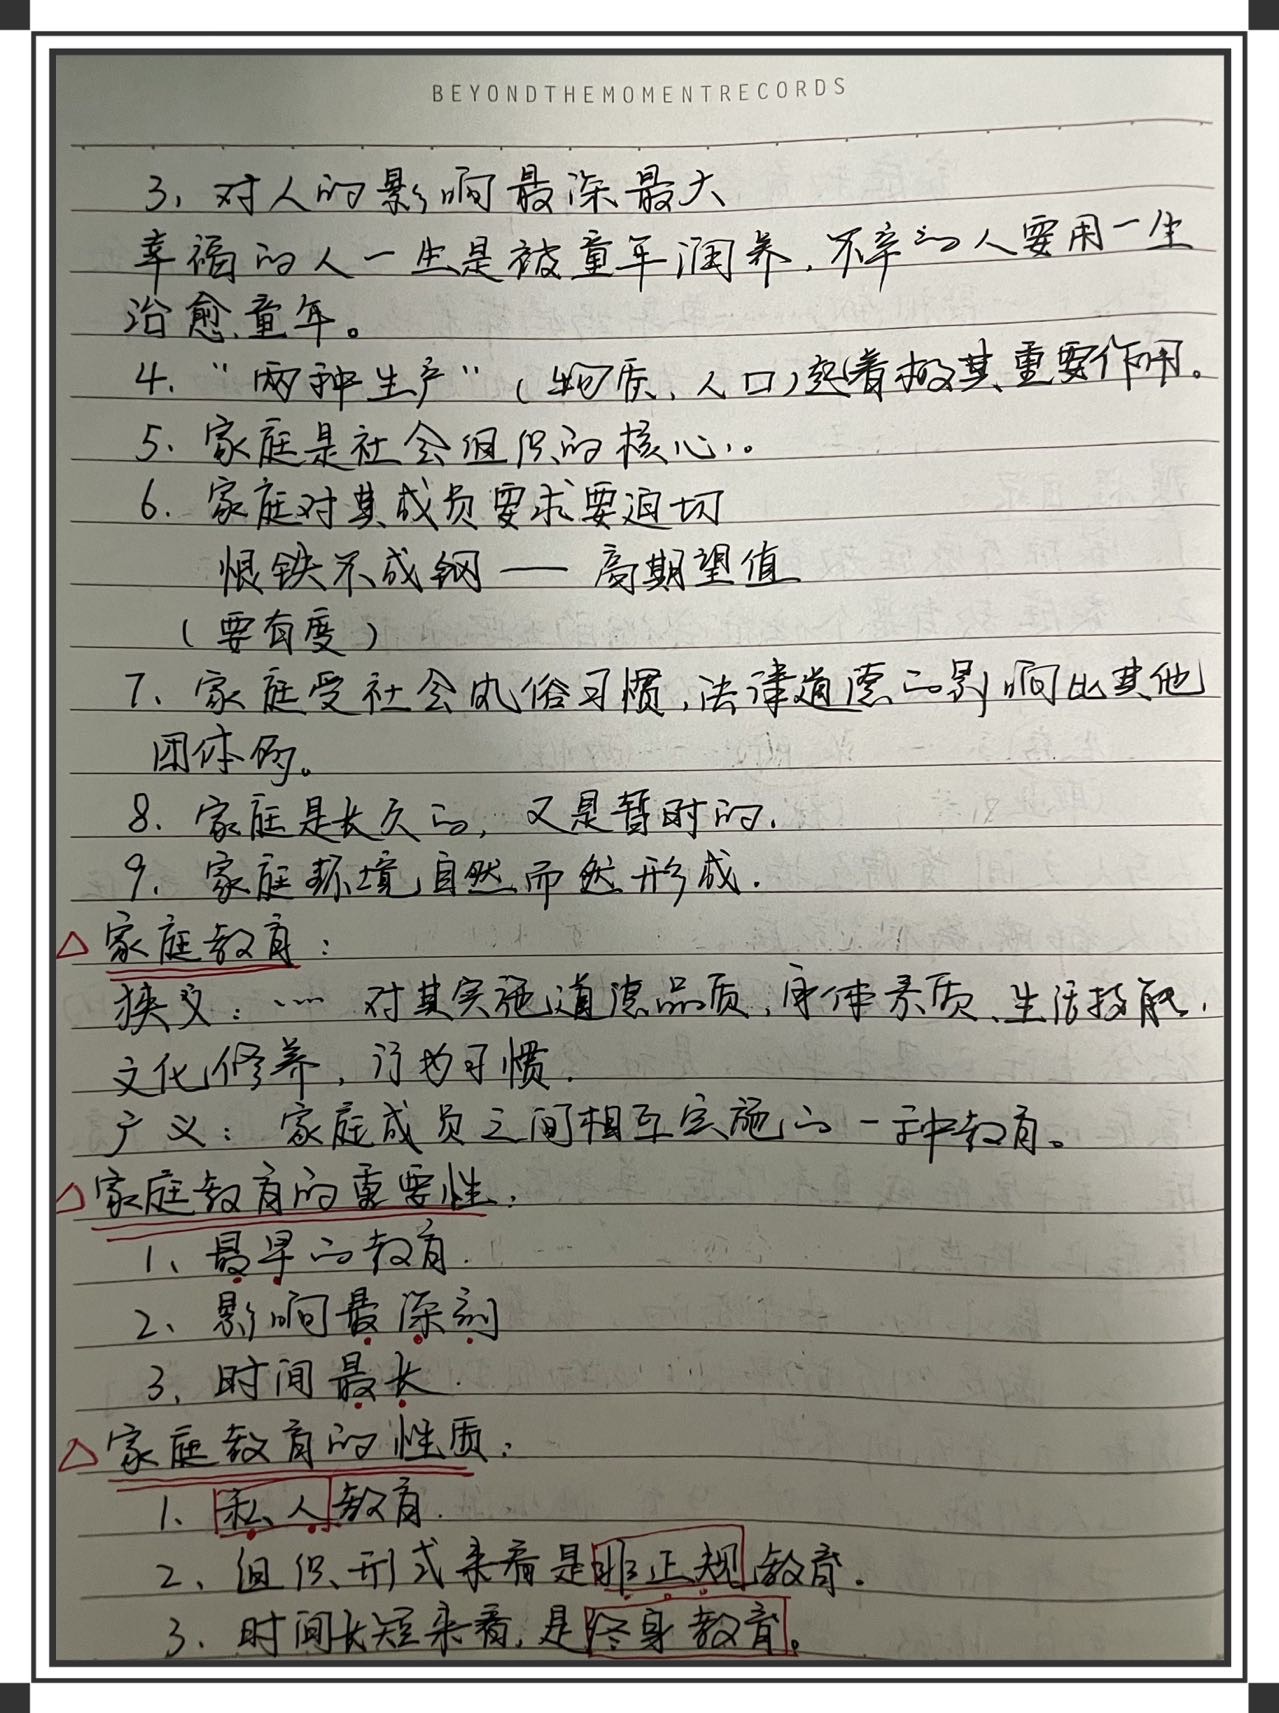 BEYONDTHEMOMENTRECORDS
3、对人的影响最深最大
幸福的人一生是被童年润养，不幸的人要用一生
治愈童年。
4、“两种生产”（物质、人口）起着极其重要作用。
5、家庭是社会组织的核心。
6、家庭对其成员要求要迫切
恨铁不成钢——高期望值
（要有度）
7、家庭受社会风俗习惯，法律道德的影响比其他
团体的。
8、家庭是长久的，又是暂时的．
9、家庭环境自然而然形成．
△家庭教育：
狭义：…… 对其实施道德品质、身体素质、生活技能、
文化修养，行为习惯．
广义：家庭成员之间相互实施的一种教育。
△家庭教育的重要性：
1、最早的教育．
2、影响最深刻
3、时间最长．
△家庭教育的性质：
1、私人教育．
2、组织形式来看是非正规教育．
3、时间长短来看，是终身教育。